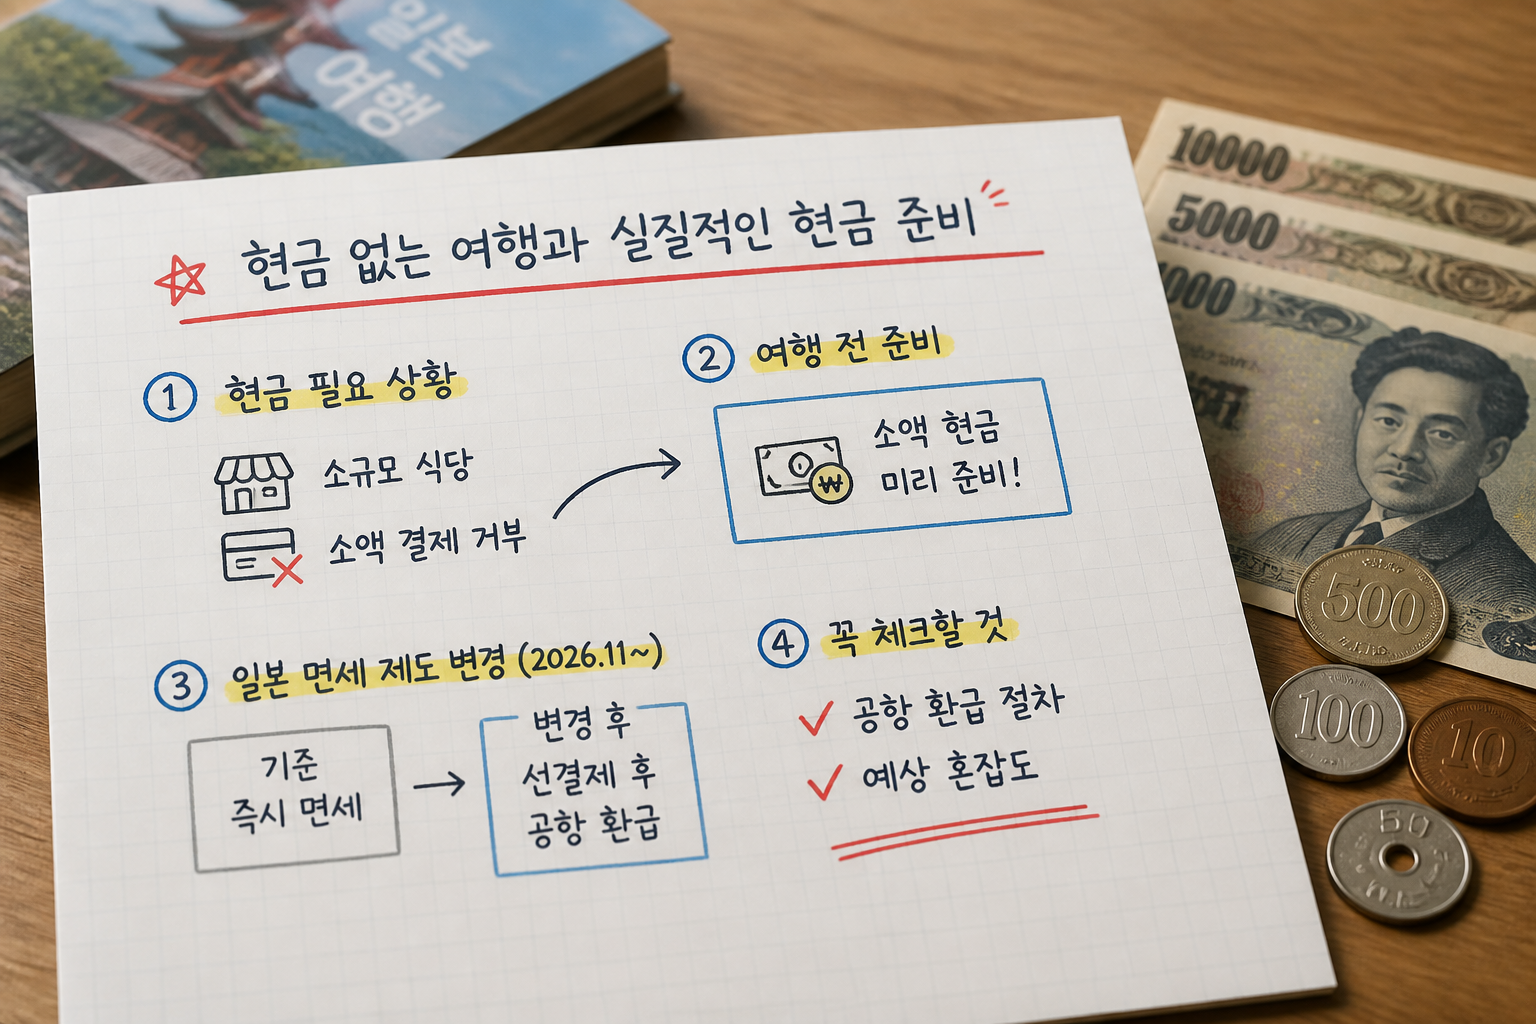 일본
여행
현금 없는 여행과 실질적인 현금 준비
1 현금 필요 상황
소규모 식당
소액 결제 거부
2 여행 전 준비
소액 현금
미리 준비!
₩
3 일본 면세 제도 변경 (2026.11~)
기준
즉시 면세
변경 후
선결제 후
공항 환급
4 꼭 체크할 것
공항 환급 절차
예상 혼잡도
10000
5000
000
500
100
10
50